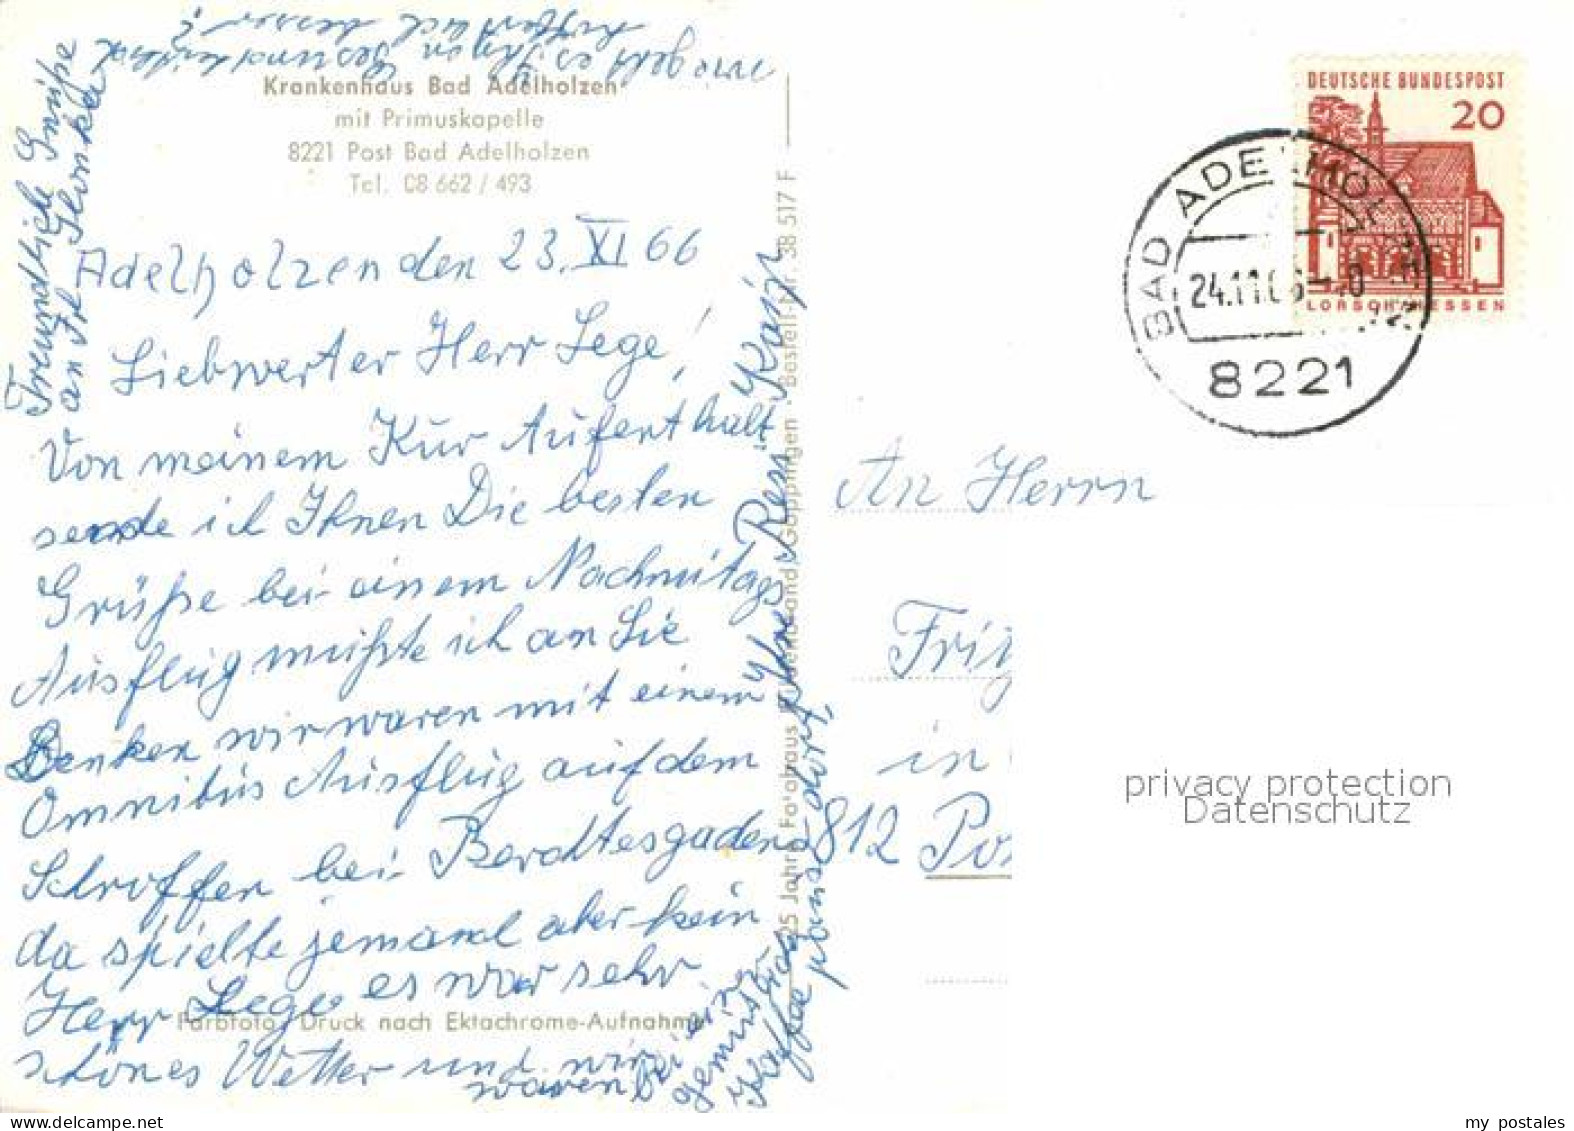 Krankenhaus Bad Adelholzen
mit Primuskapelle
8221 Post Bad Adelholzen
Tel. 08 662 / 493
Adelholzen den 23. XI 66
Liebwerter Herr Lege!
Von meinem Kur Aufenthalt
sende ich Ihnen Die besten
Grüße bei einem Nachmitags
Ausflug mußte ich an Sie
Denken wir waren mit einem
Omnibus Ausflug auf dem
Schroffen bei Berchtesgaden
da spielte jemand aber kein
Herr Lege es war sehr
schönes Wetter und wir
waren bei einer
gemütlich
Kaffee dort,
Ihre Resi
Freundliche Grüße
an Fr Glonka
wie geht es Ihnen Gesundheitlich
hoffentlich besser?
Farbfoto Druck nach Ektachrome-Aufnahme
25 Jahre Fotohaus Hildenbrand Göppingen · Bestell-Nr. 38 517 F
DEUTSCHE BUNDESPOST
20
LORSCH/HESSEN
BAD ADELHOLZEN
24.11.66
8221
An Herrn
Fri
in
812 Po
privacy protection
Datenschutz
my postales